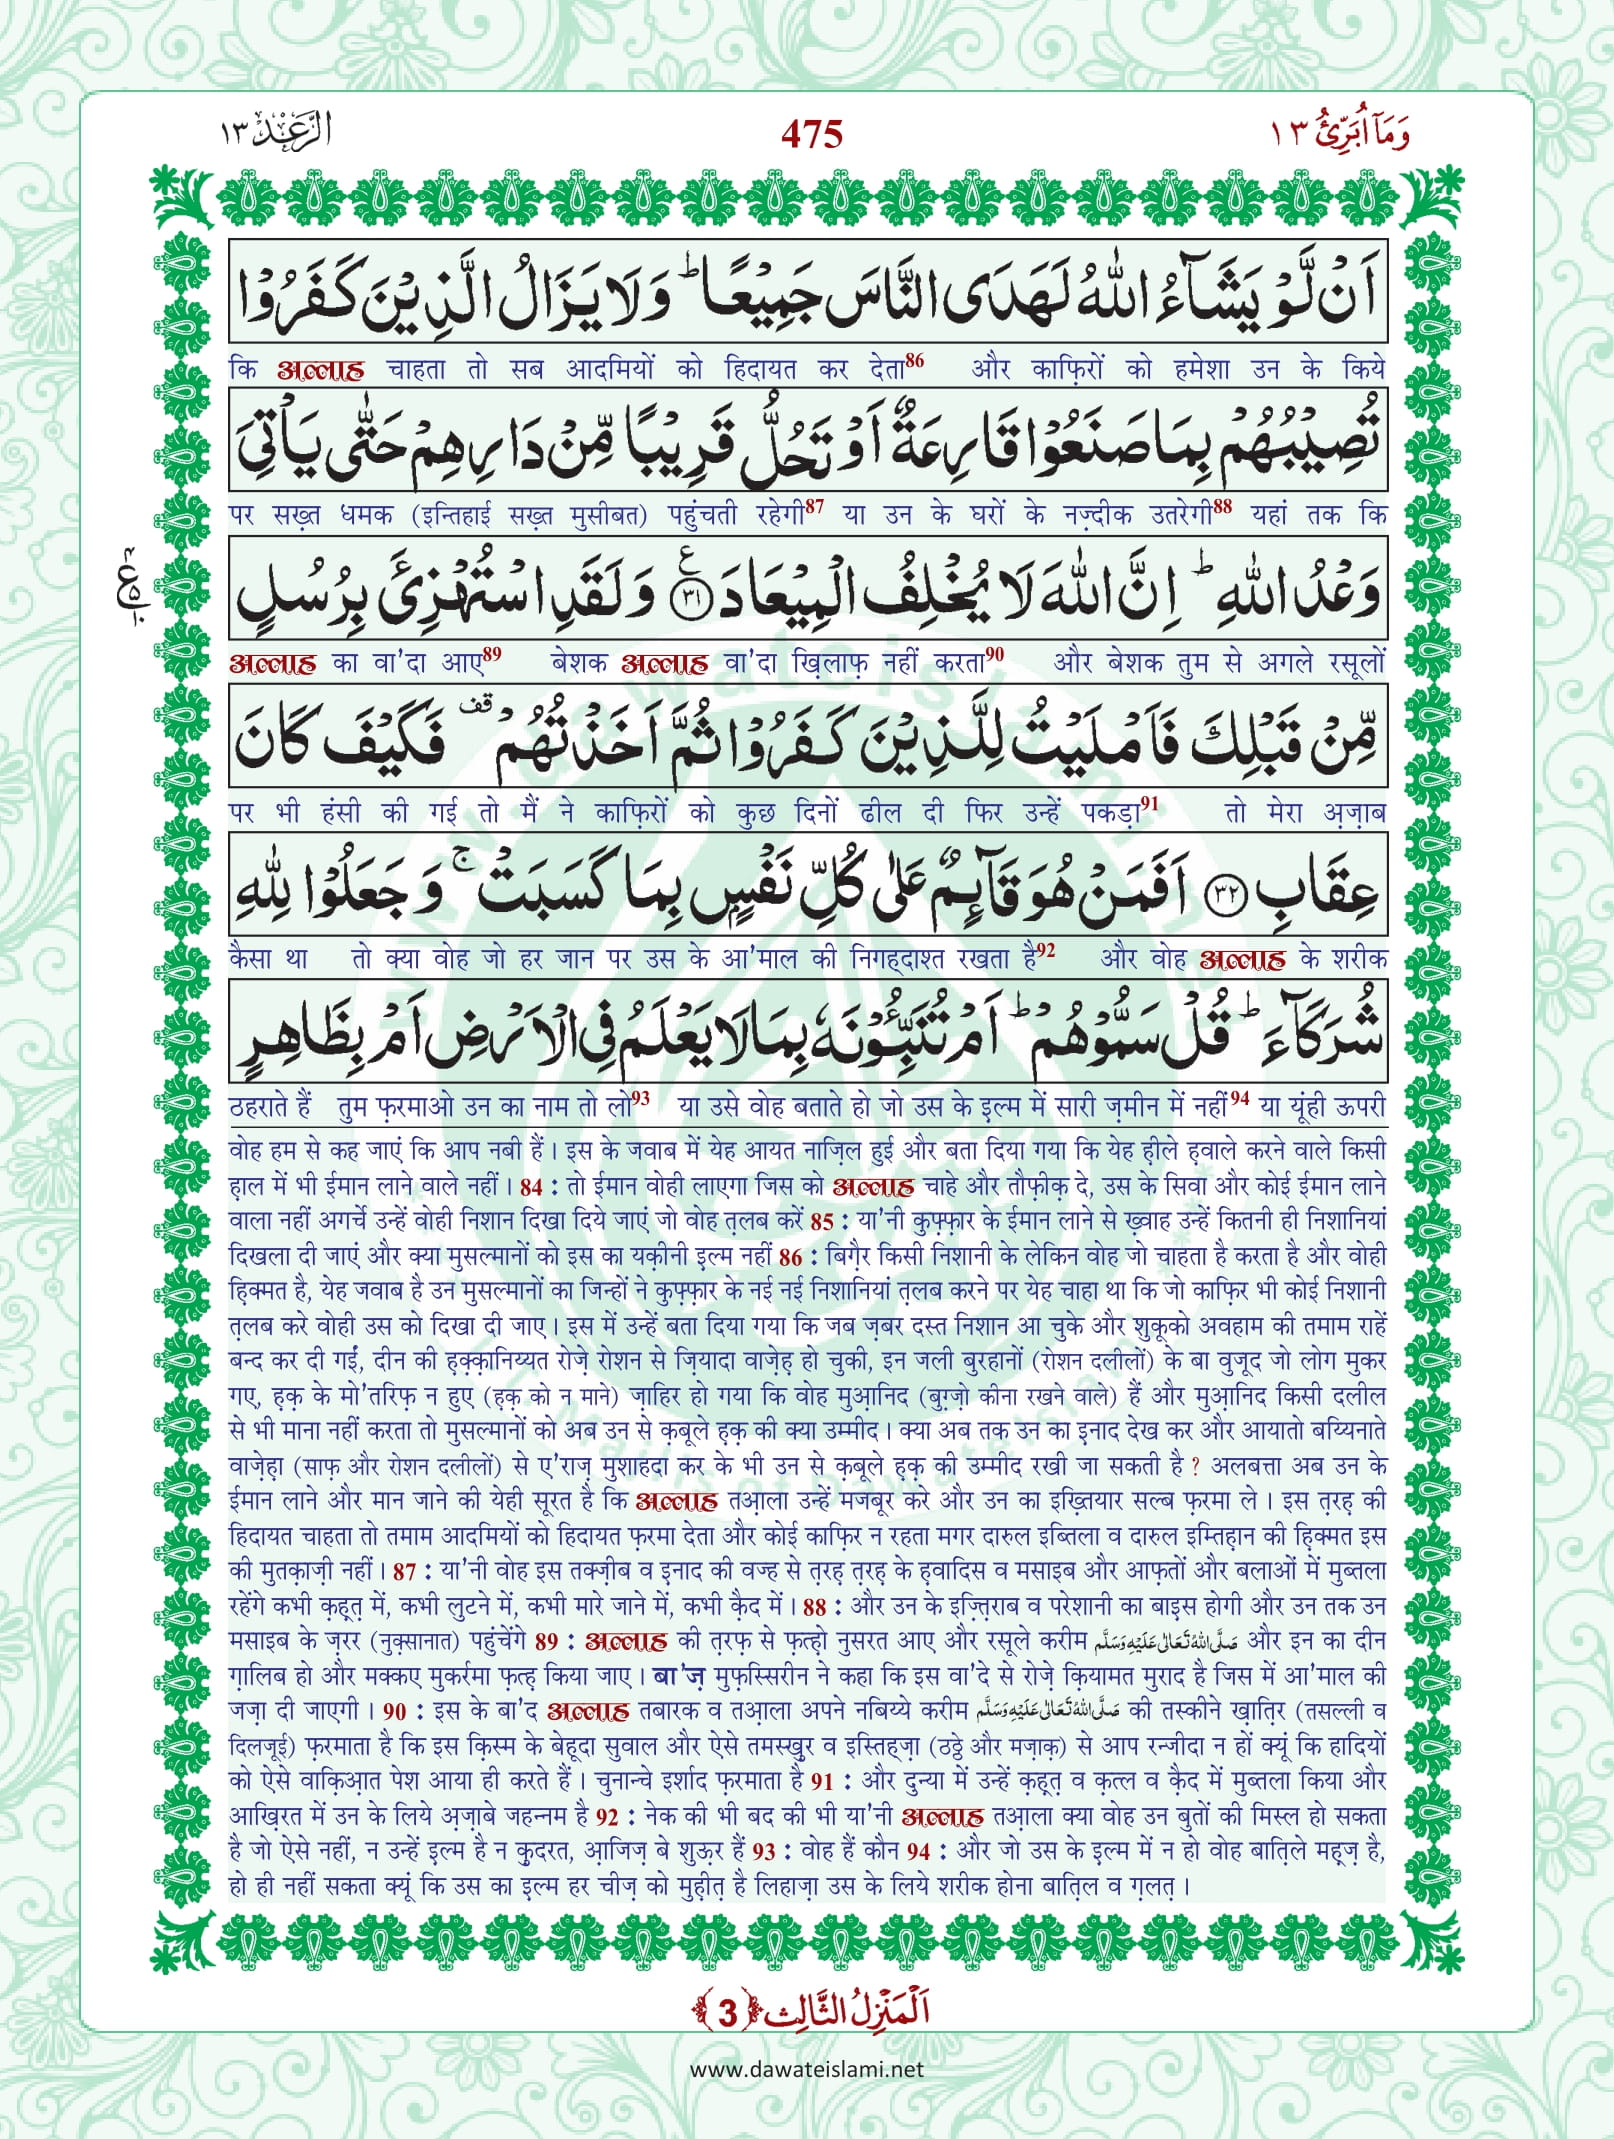 وَمَاۤ اُبَرِّئُ ١٣
475
الرَّعْد ١٣
اَنْ لَّوْ یَشَآءُ اللّٰهُ لَهَدَی النَّاسَ جَمِیْعًا ؕ وَ لَا یَزَالُ الَّذِیْنَ كَفَرُوْا
कि अल्लाह चाहता तो सब आदमियों को हिदायत कर देता86 और काफ़िरों को हमेशा उन के किये
تُصِیْبُهُمْ بِمَا صَنَعُوْا قَارِعَةٌ اَوْ تَحُلُّ قَرِیْبًا مِّنْ دَارِهِمْ حَتّٰی یَاْتِیَ
पर सख़्त धमक (इन्तिहाई सख़्त मुसीबत) पहुंचती रहेगी87 या उन के घरों के नज़्दीक उतरेगी88 यहां तक कि
وَعْدُ اللّٰهِ ؕ اِنَّ اللّٰهَ لَا یُخْلِفُ الْمِیْعَادَ ﴿٣١﴾ ع وَ لَقَدِ اسْتُهْزِئَ بِرُسُلٍ
अल्लाह का वा'दा आए89 बेशक अल्लाह वा'दा ख़िलाफ़ नहीं करता90 और बेशक तुम से अगले रसूलों
مِّنْ قَبْلِكَ فَاَمْلَیْتُ لِلَّذِیْنَ كَفَرُوْا ثُمَّ اَخَذْتُهُمْ قف فَكَیْفَ كَانَ
पर भी हंसी की गई तो मैं ने काफ़िरों को कुछ दिनों ढील दी फिर उन्हें पकड़ा91 तो मेरा अ़ज़ाब
عِقَابِ ﴿٣٢﴾ اَفَمَنْ هُوَ قَآىٕمٌ عَلٰی كُلِّ نَفْسٍۭ بِمَا كَسَبَتْ ۚ وَ جَعَلُوْا لِلّٰهِ
कैसा था तो क्या वोह जो हर जान पर उस के आ'माल की निगह्दाश्त रखता है92 और वोह अल्लाह के शरीक
شُرَكَآءَ ؕ قُلْ سَمُّوْهُمْ ؕ اَمْ تُنَبِّـُٔوْنَهٗ بِمَا لَا یَعْلَمُ فِی الْاَرْضِ اَمْ بِظَاهِرٍ
ठहराते हैं तुम फ़रमाओ उन का नाम तो लो93 या उसे वोह बताते हो जो उस के इ़ल्म में सारी ज़मीन में नहीं94 या यूंही ऊपरी
वोह हम से कह जाएं कि आप नबी हैं। इस के जवाब में येह आयत नाज़िल हुई और बता दिया गया कि येह ह़ीले ह़वाले करने वाले किसी
ह़ाल में भी ईमान लाने वाले नहीं। 84 : तो ईमान वोही लाएगा जिस को अल्लाह चाहे और तौफ़ीक़ दे, उस के सिवा और कोई ईमान लाने
वाला नहीं अगर्चे उन्हें वोही निशान दिखा दिये जाएं जो वोह त़लब करें 85 : या'नी कुफ़्फ़ार के ईमान लाने से ख़्वाह उन्हें कितनी ही निशानियां
दिखला दी जाएं और क्या मुसल्मानों को इस का यक़ीनी इ़ल्म नहीं 86 : बिग़ैर किसी निशानी के लेकिन वोह जो चाहता है करता है और वोही
ह़िक्मत है, येह जवाब है उन मुसल्मानों का जिन्हों ने कुफ़्फ़ार के नई नई निशानियां त़लब करने पर येह चाहा था कि जो काफ़िर भी कोई निशानी
त़लब करे वोही उस को दिखा दी जाए। इस में उन्हें बता दिया गया कि जब ज़बर दस्त निशान आ चुके और शुकूको अवहाम की तमाम राहें
बन्द कर दी गईं, दीन की ह़क़्क़ानिय्यत रोज़े रोशन से ज़ियादा वाज़ेह़ हो चुकी, इन जली बुरहानों (रोशन दलीलों) के बा वुजूद जो लोग मुकर
गए, ह़क़ के मो'तरिफ़ न हुए (ह़क़ को न माने) ज़ाहिर हो गया कि वोह मुआ़निद (बुग़्ज़ो कीना रखने वाले) हैं और मुआ़निद किसी दलील
से भी माना नहीं करता तो मुसल्मानों को अब उन से क़बूले ह़क़ की क्या उम्मीद। क्या अब तक उन का इ़नाद देख कर और आयातो बय्यिनाते
वाज़ेह़ा (साफ़ और रोशन दलीलों) से ए'राज़ मुशाहदा कर के भी उन से क़बूले ह़क़ की उम्मीद रखी जा सकती है ? अलबत्ता अब उन के
ईमान लाने और मान जाने की येही सूरत है कि अल्लाह तआ़ला उन्हें मजबूर करे और उन का इख़्तियार सल्ब फ़रमा ले। इस त़रह़ की
हिदायत चाहता तो तमाम आदमियों को हिदायत फ़रमा देता और कोई काफ़िर न रहता मगर दारुल इब्तिला व दारुल इम्तिह़ान की ह़िक्मत इस
की मुतक़ाज़ी नहीं। 87 : या'नी वोह इस तक्ज़ीब व इ़नाद की वज्ह से त़रह़ त़रह़ के ह़वादिस व मसाइब और आफ़तों और बलाओं में मुब्तला
रहेंगे कभी क़ह़्त़ में, कभी लुटने में, कभी मारे जाने में, कभी क़ैद में। 88 : और उन के इज़्त़िराब व परेशानी का बाइस होगी और उन तक उन
मसाइब के ज़रर (नुक़्सानात) पहुंचेंगे 89 : अल्लाह की त़रफ़ से फ़त्ह़ो नुसरत आए और रसूले करीम صَلَّى اللهُ تَعَالٰى عَلَيْهِ وَسَلَّم और इन का दीन
ग़ालिब हो और मक्कए मुकर्रमा फ़त्ह़ किया जाए। बा'ज़ मुफ़स्सिरीन ने कहा कि इस वा'दे से रोज़े क़ियामत मुराद है जिस में आ'माल की
जज़ा दी जाएगी। 90 : इस के बा'द अल्लाह तबारक व तआ़ला अपने नबिय्ये करीम صَلَّى اللهُ تَعَالٰى عَلَيْهِ وَسَلَّم की तस्कीने ख़ात़िर (तसल्ली व
दिलजूई) फ़रमाता है कि इस क़िस्म के बेहूदा सुवाल और ऐसे तमस्ख़ुर व इस्तिह्ज़ा (ठठ्ठे और मज़ाक़) से आप रन्जीदा न हों क्यूं कि हादियों
को ऐसे वाक़िआ़त पेश आया ही करते हैं। चुनान्चे इर्शाद फ़रमाता है 91 : और दुन्या में उन्हें क़ह़्त़ व क़त्ल व क़ैद में मुब्तला किया और
आख़िरत में उन के लिये अ़ज़ाबे जहन्नम है 92 : नेक की भी बद की भी या'नी अल्लाह तआ़ला क्या वोह उन बुतों की मिस्ल हो सकता
है जो ऐसे नहीं, न उन्हें इ़ल्म है न क़ुदरत, आ़जिज़ बे शुऊ़र हैं 93 : वोह हैं कौन 94 : और जो उस के इ़ल्म में न हो वोह बात़िले मह़्ज़ है,
हो ही नहीं सकता क्यूं कि उस का इ़ल्म हर चीज़ को मुह़ीत़ है लिहाज़ा उस के लिये शरीक होना बात़िल व ग़लत़।
اَلْمَنْزِلُ الثَّالِث ﴿3﴾
www.dawateislami.net